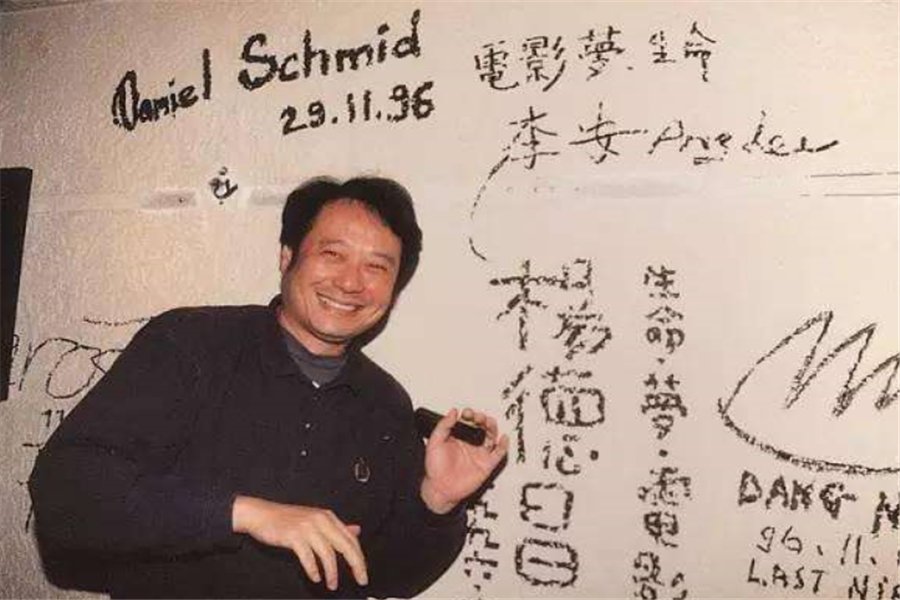 Daniel Schmid
29.11.96
電影夢.生命
李安 Ang Lee
楊德昌
生命·夢·電影
DANG
96.11.
LAST